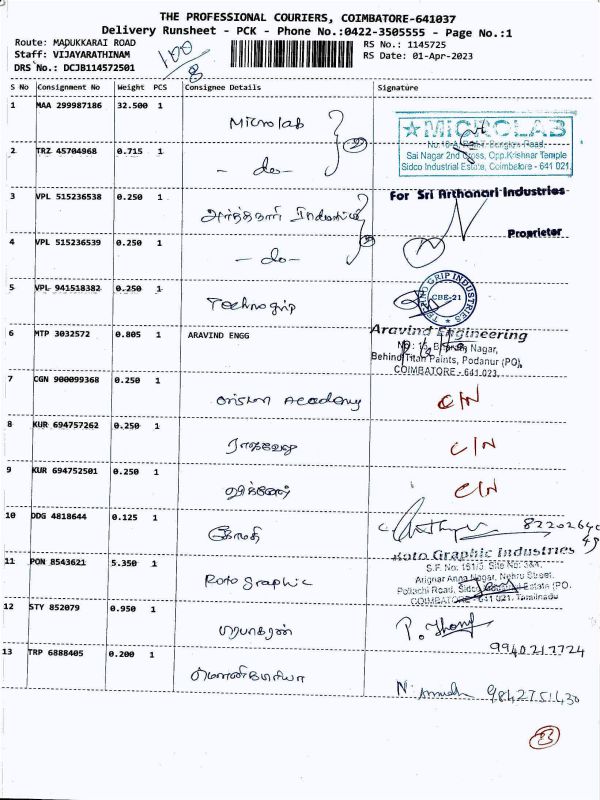 THE PROFESSIONAL COURIERS, COIMBATORE-641037
Delivery Runsheet - PCK - Phone No.:0422-3505555 - Page No.:1
Route: MADUKKARAI ROAD
RS No.: 1145725
Staff: VIJAYARATHINAM
RS Date: 01-Apr-2023
DRS No.: DCJB114572501
100/8
S No Consignment No Weight PCS Consignee Details Signature
1 MAA 299987186 32.500 1
Microlab
★MICROLAB
Sai Nagar 2nd Cross, Opp.Krishnar Temple
Sidco Industrial Estate, Coimbatore - 641 021.
2 TRZ 45704968 0.715 1
- do -
3 VPL 515236538 0.250 1
For Sri Arthanari Industries
Proprietor
4 VPL 515236539 0.250 1
- do -
5 VPL 941518382 0.250 1
Technogrip
GRIP INDUSTRIES
CBE-21
6 MTP 3032572 0.805 1 ARAVIND ENGG
Aravind Engineering
Nagar,
Behind Titan Paints, Podanur (PO),
COIMBATORE - 641 023.
7 CGN 900099368 0.250 1
Academy
C/N
8 KUR 694757262 0.250 1
C/N
9 KUR 694752501 0.250 1
C/N
10 DDG 4818644 0.125 1
கோமதி
11 PON 8543621 5.350 1
Roto graphic
Roto Graphic Industries
S.F. No.
Arignar Anna Nagar, Nehru Street,
Pollachi Road, Sidco Industrial Estate (PO.
COIMBATORE - 641 021. Tamilnadu
12 STY 852079 0.950 1
பிரபாகரன்
9940217724
13 TRP 6888405 0.200 1
9842751430
13